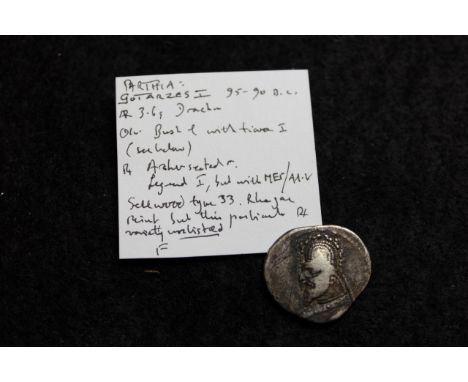 PARTHIA:-
GOTARZES I 95-90 B.C.
AR 3.6g Drachm
Obv. Bust l with tiara I
(see below)
R. Archer seated r.
Legend I, but with
Sellwood type 33. Rhagae
mint but this particular
variety unlisted
F